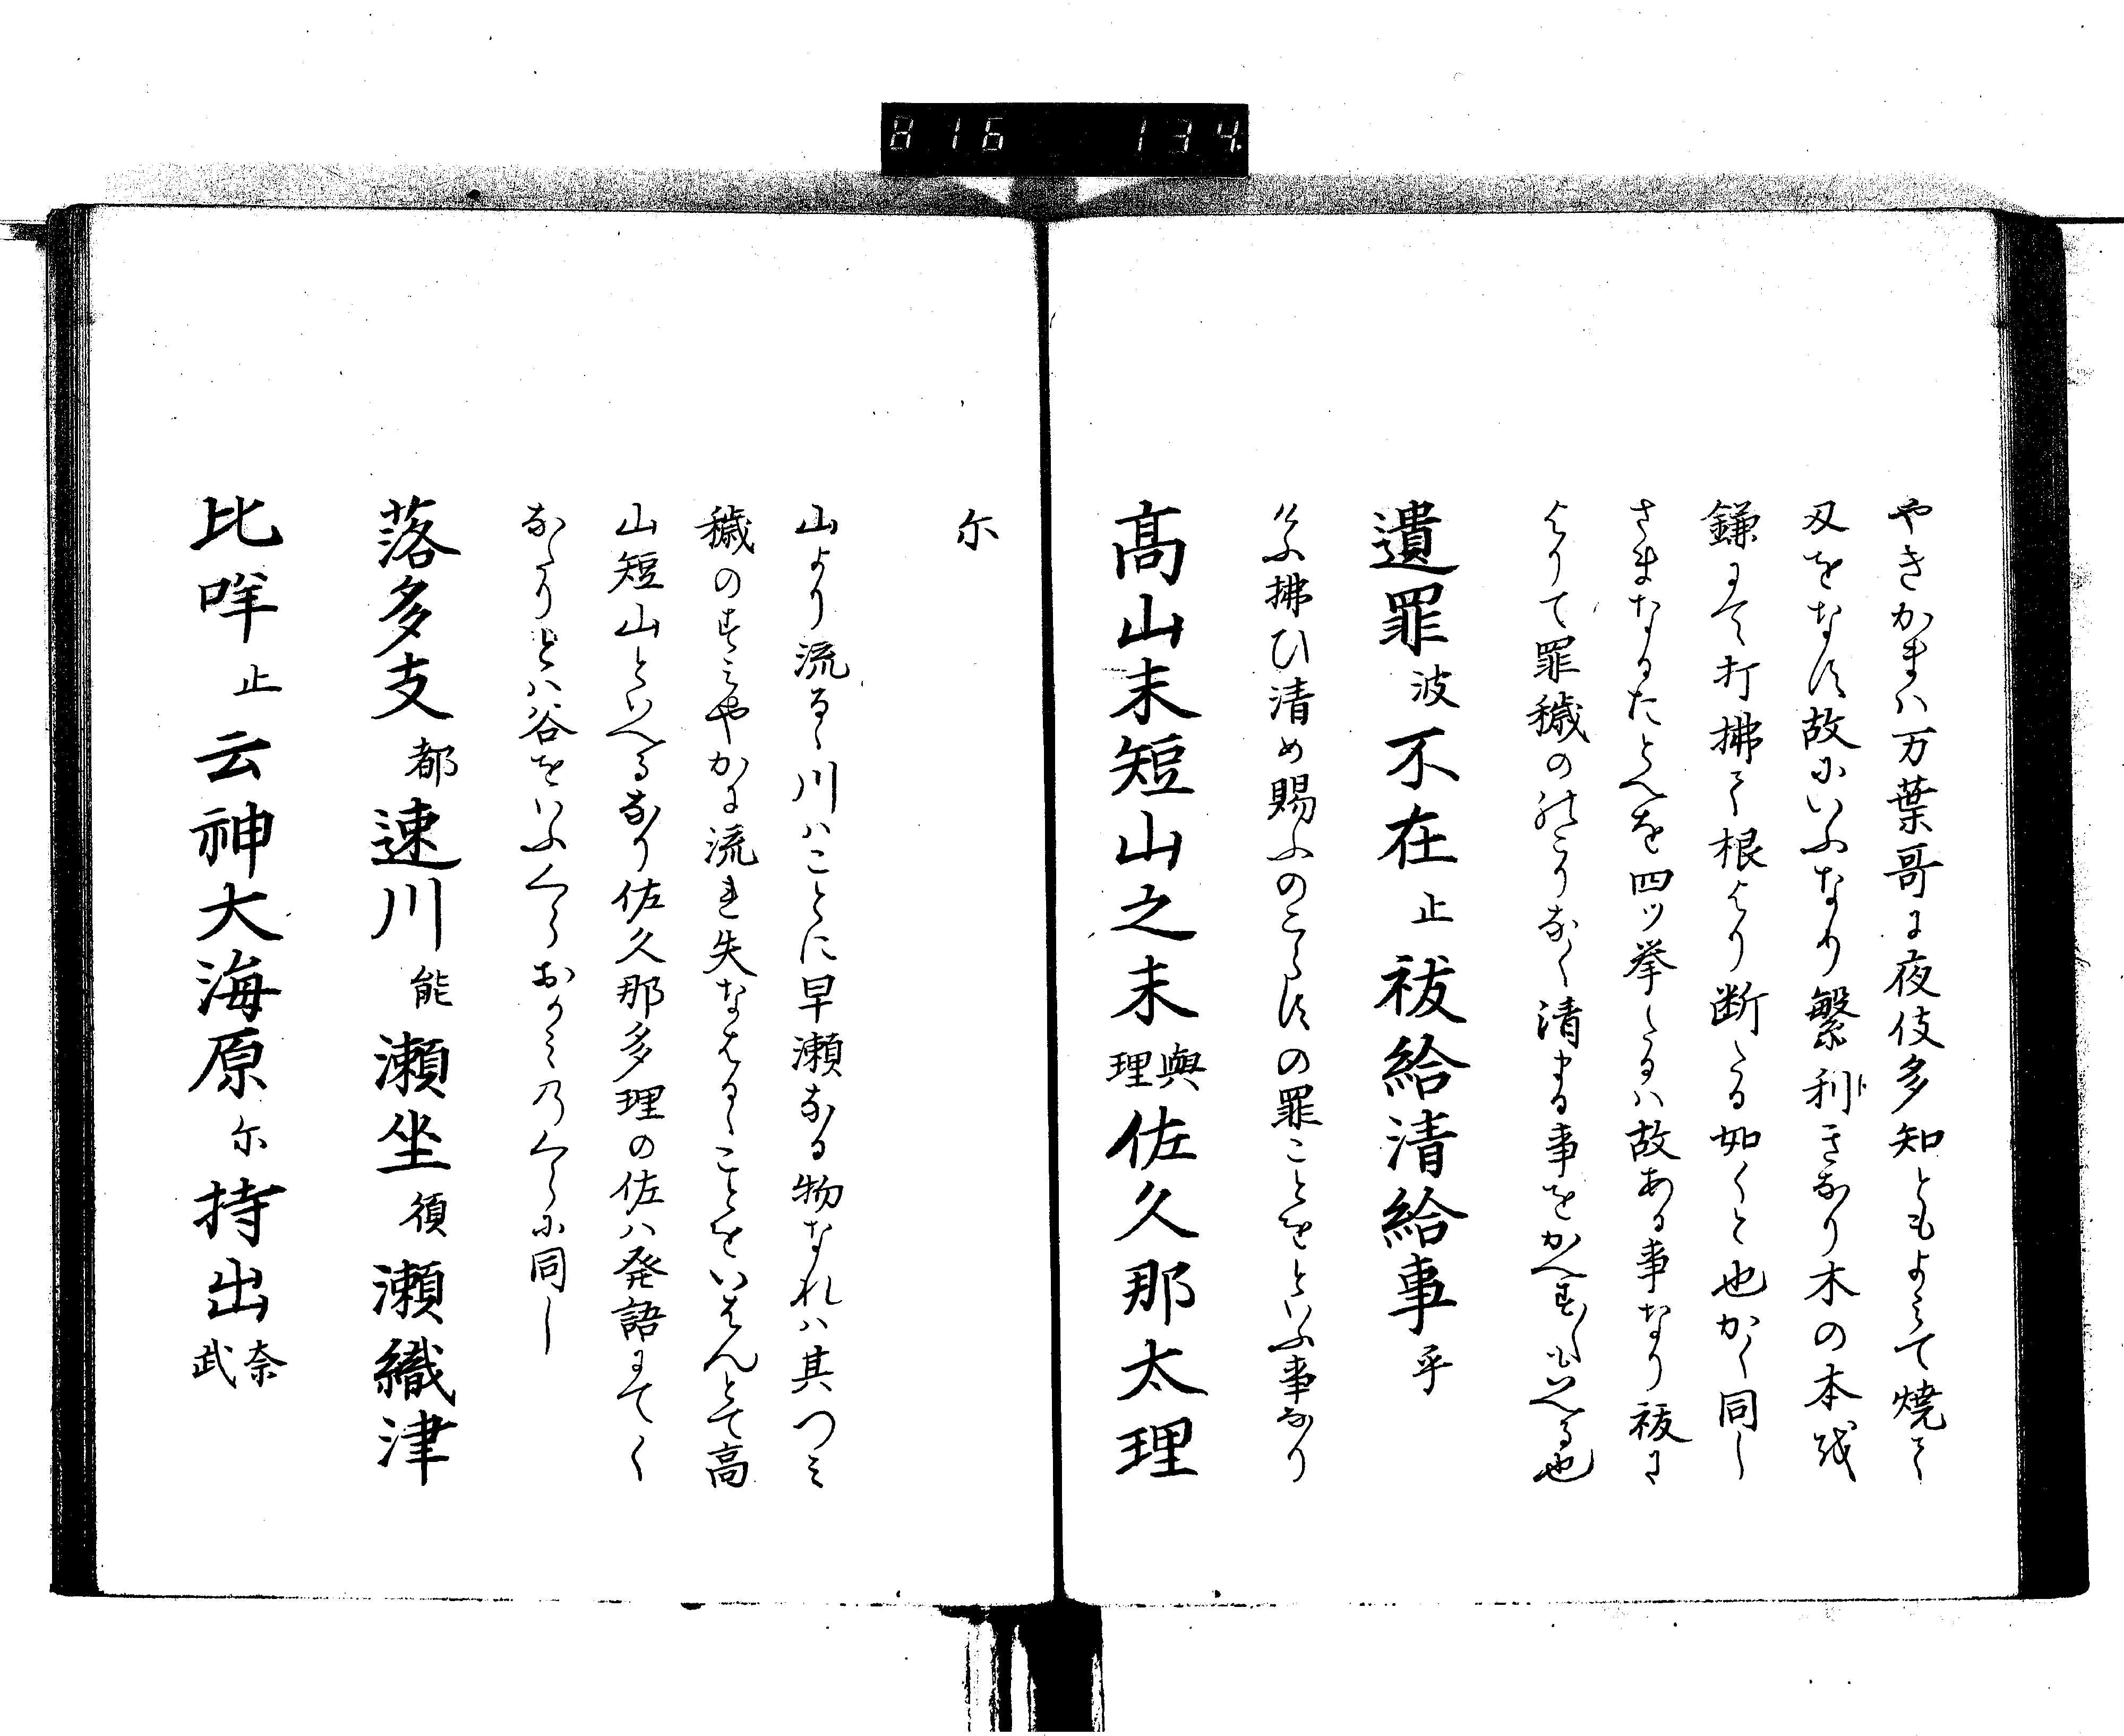 816 134
やきかまハ万葉哥に夜伎多知ともよみて焼て
刃をなす故にいふなり繁利きなり木の本を
鎌にて打拂て根より断たる如くと也かく同し
さまなるたとへを四ッ挙たるハ故ある事なり祓に
よりて罪穢ののこりなく清まる事をかへす〱いへる也
遺罪波不在止祓給清給事乎
拂ひ清め賜ふのこらすの罪ことをといふ事なり
髙山末短山之末與理佐久那太理
尓
山より流るゝ川ハことに早瀬なる物なれハ其つミ
穢のすミやかに流れ失なはるゝことをいはんとて高
山短山といへるなり佐久那多理の佐ハ発語にてく
なたりとハ谷をいふくらおかミのくらに同し
落多支都速川能瀬坐須瀬織津
比咩止云神大海原尓持出奈武